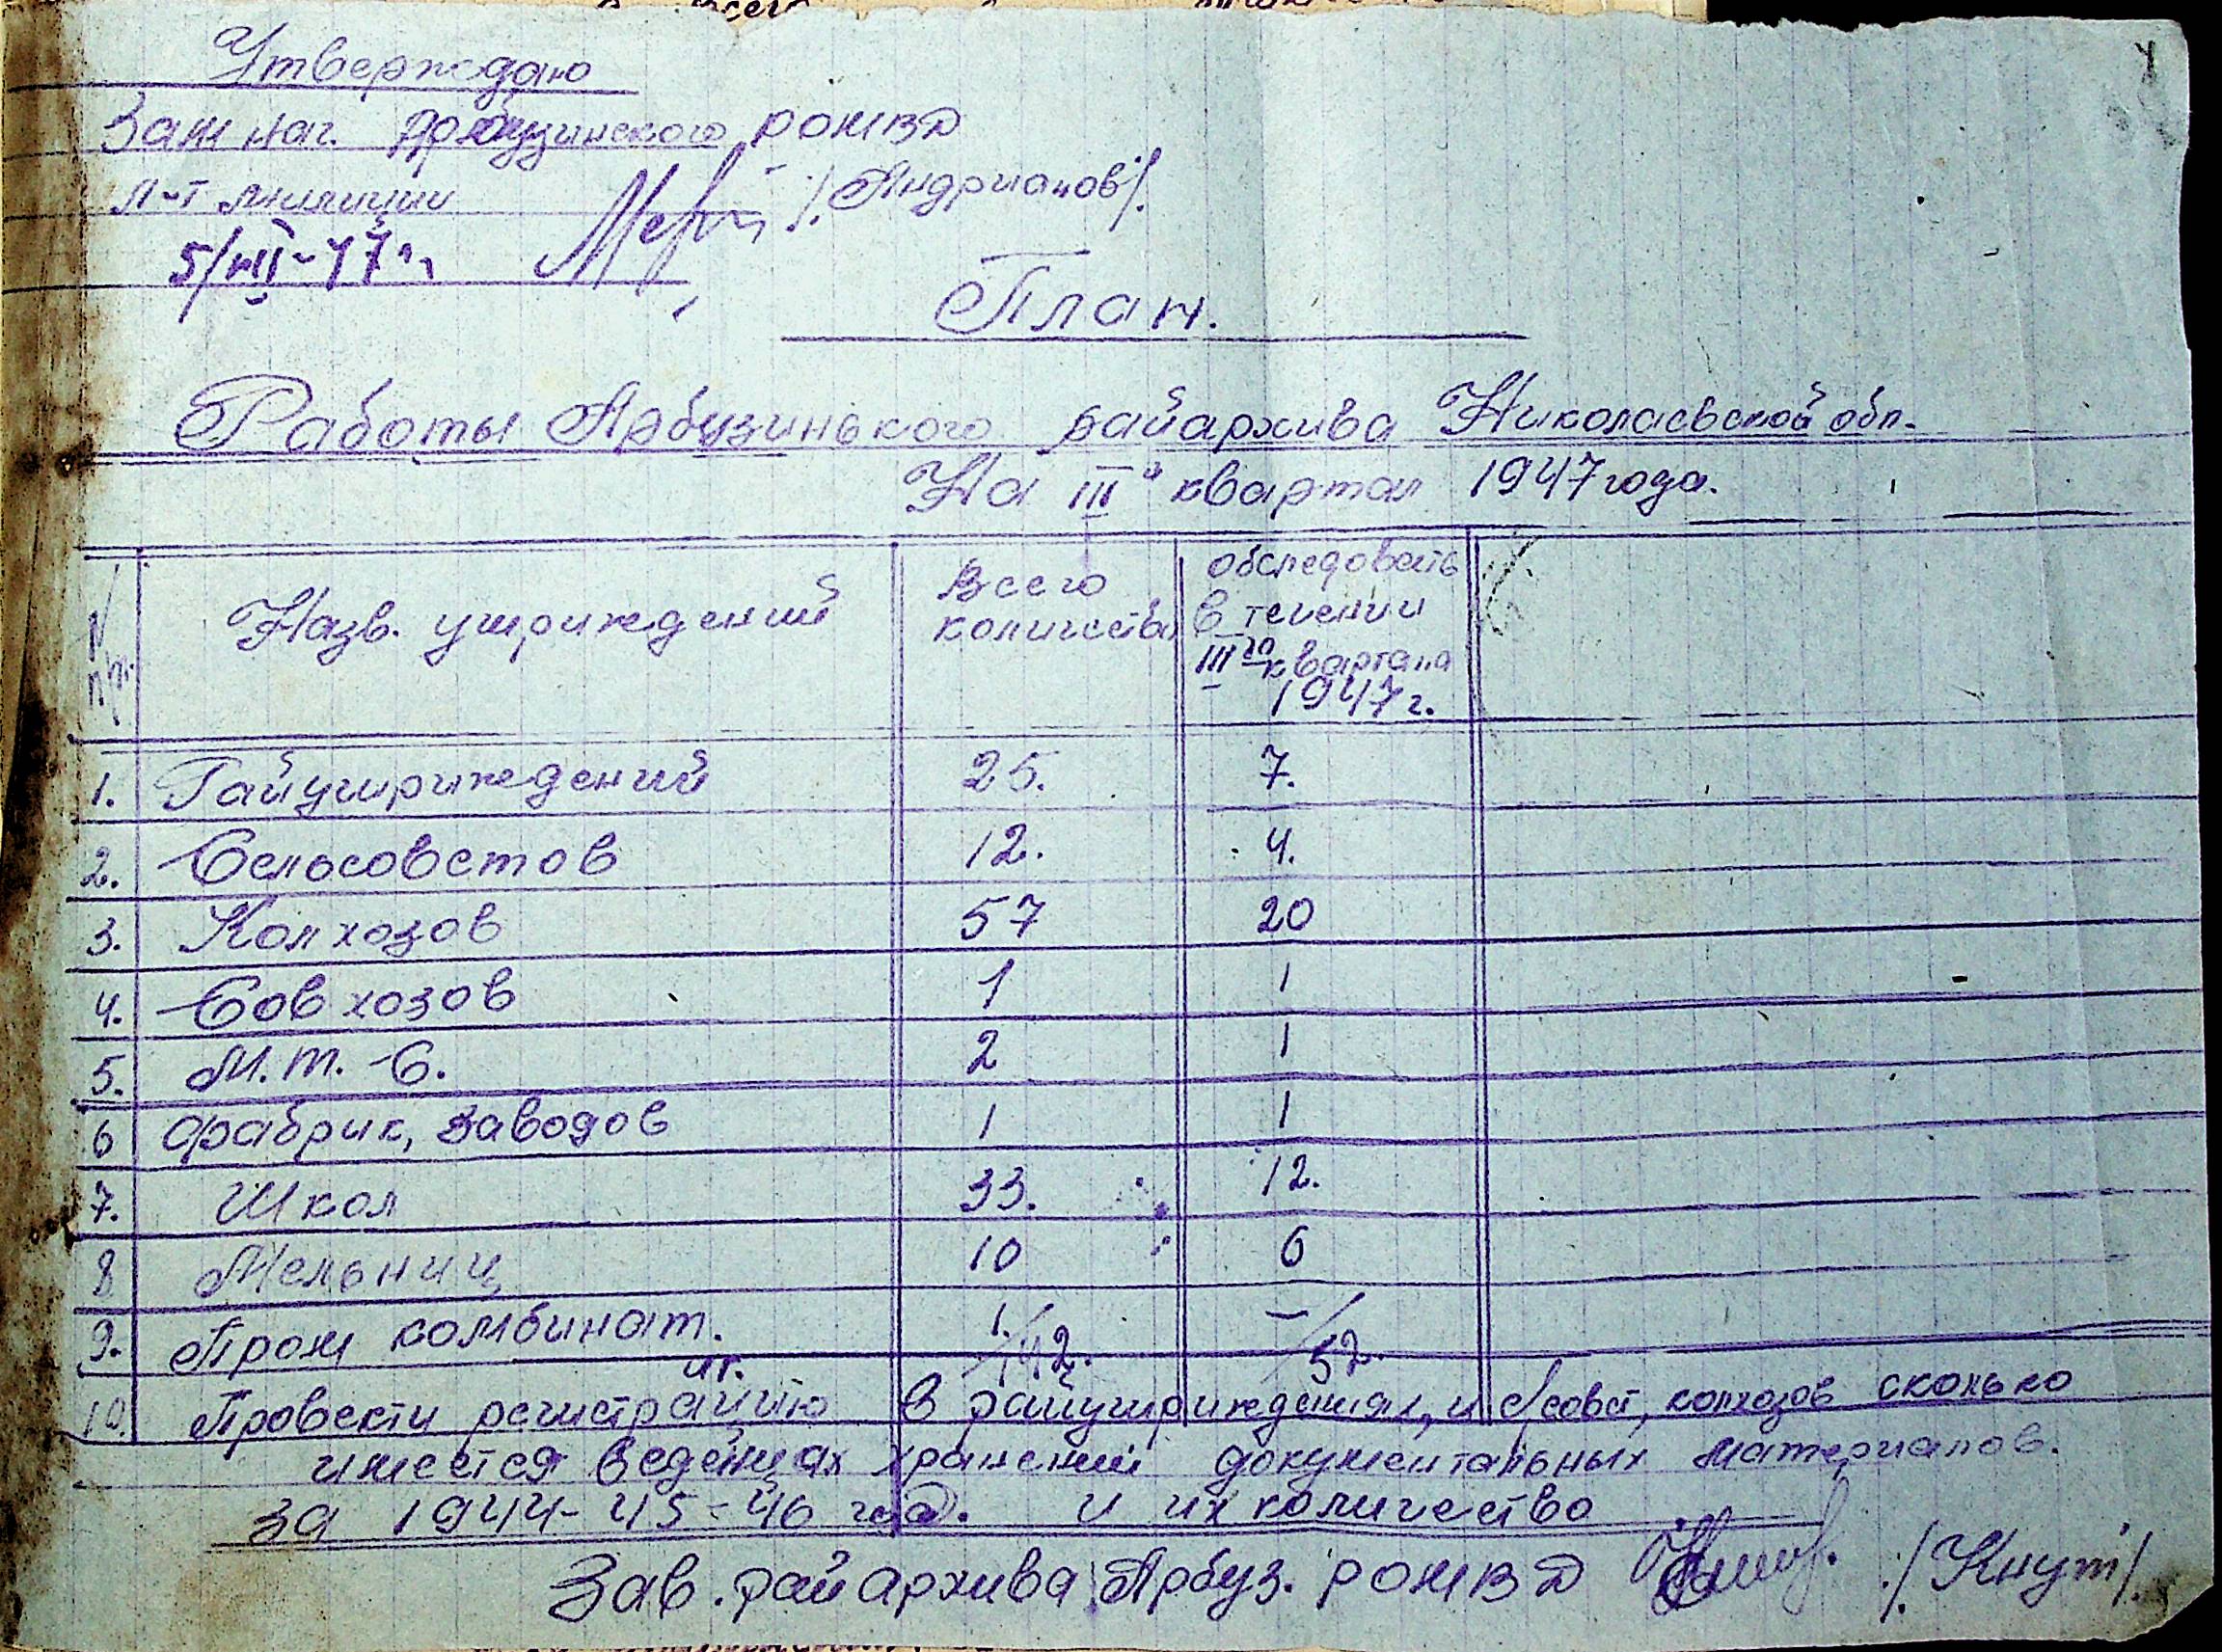 Утверждаю
Зам нач. Арбузинского РОМВД
л-т милиции /Андрианов/.
5/VII-47 г.
План.
Работы Арбузинького райархива Николаевской обл.
На III й квартал 1947 года.
N п/п. Назв. учриждений Всего количества обследовать в течении III го квартала 1947 г.
1. Райучриждений 25. 7.
2. Сельсоветов 12. 4.
3. Колхозов 57 20
4. Совхозов 1 1
5. М.т.С. 2 1
6 Фабрик, заводов 1 1
7. Школ 33. 12.
8 Мельниц 10 6
9. Пром комбинат. 1. –
ит. 142. 52.
10. Провести регистрацию в райучриждениях, и с/совет, колхозов сколько
имеется в едениах хранений документальных материалов.
за 1944-45-46 год. и их количество
Зав. райархива Арбуз. РОМВД /Кнут/.